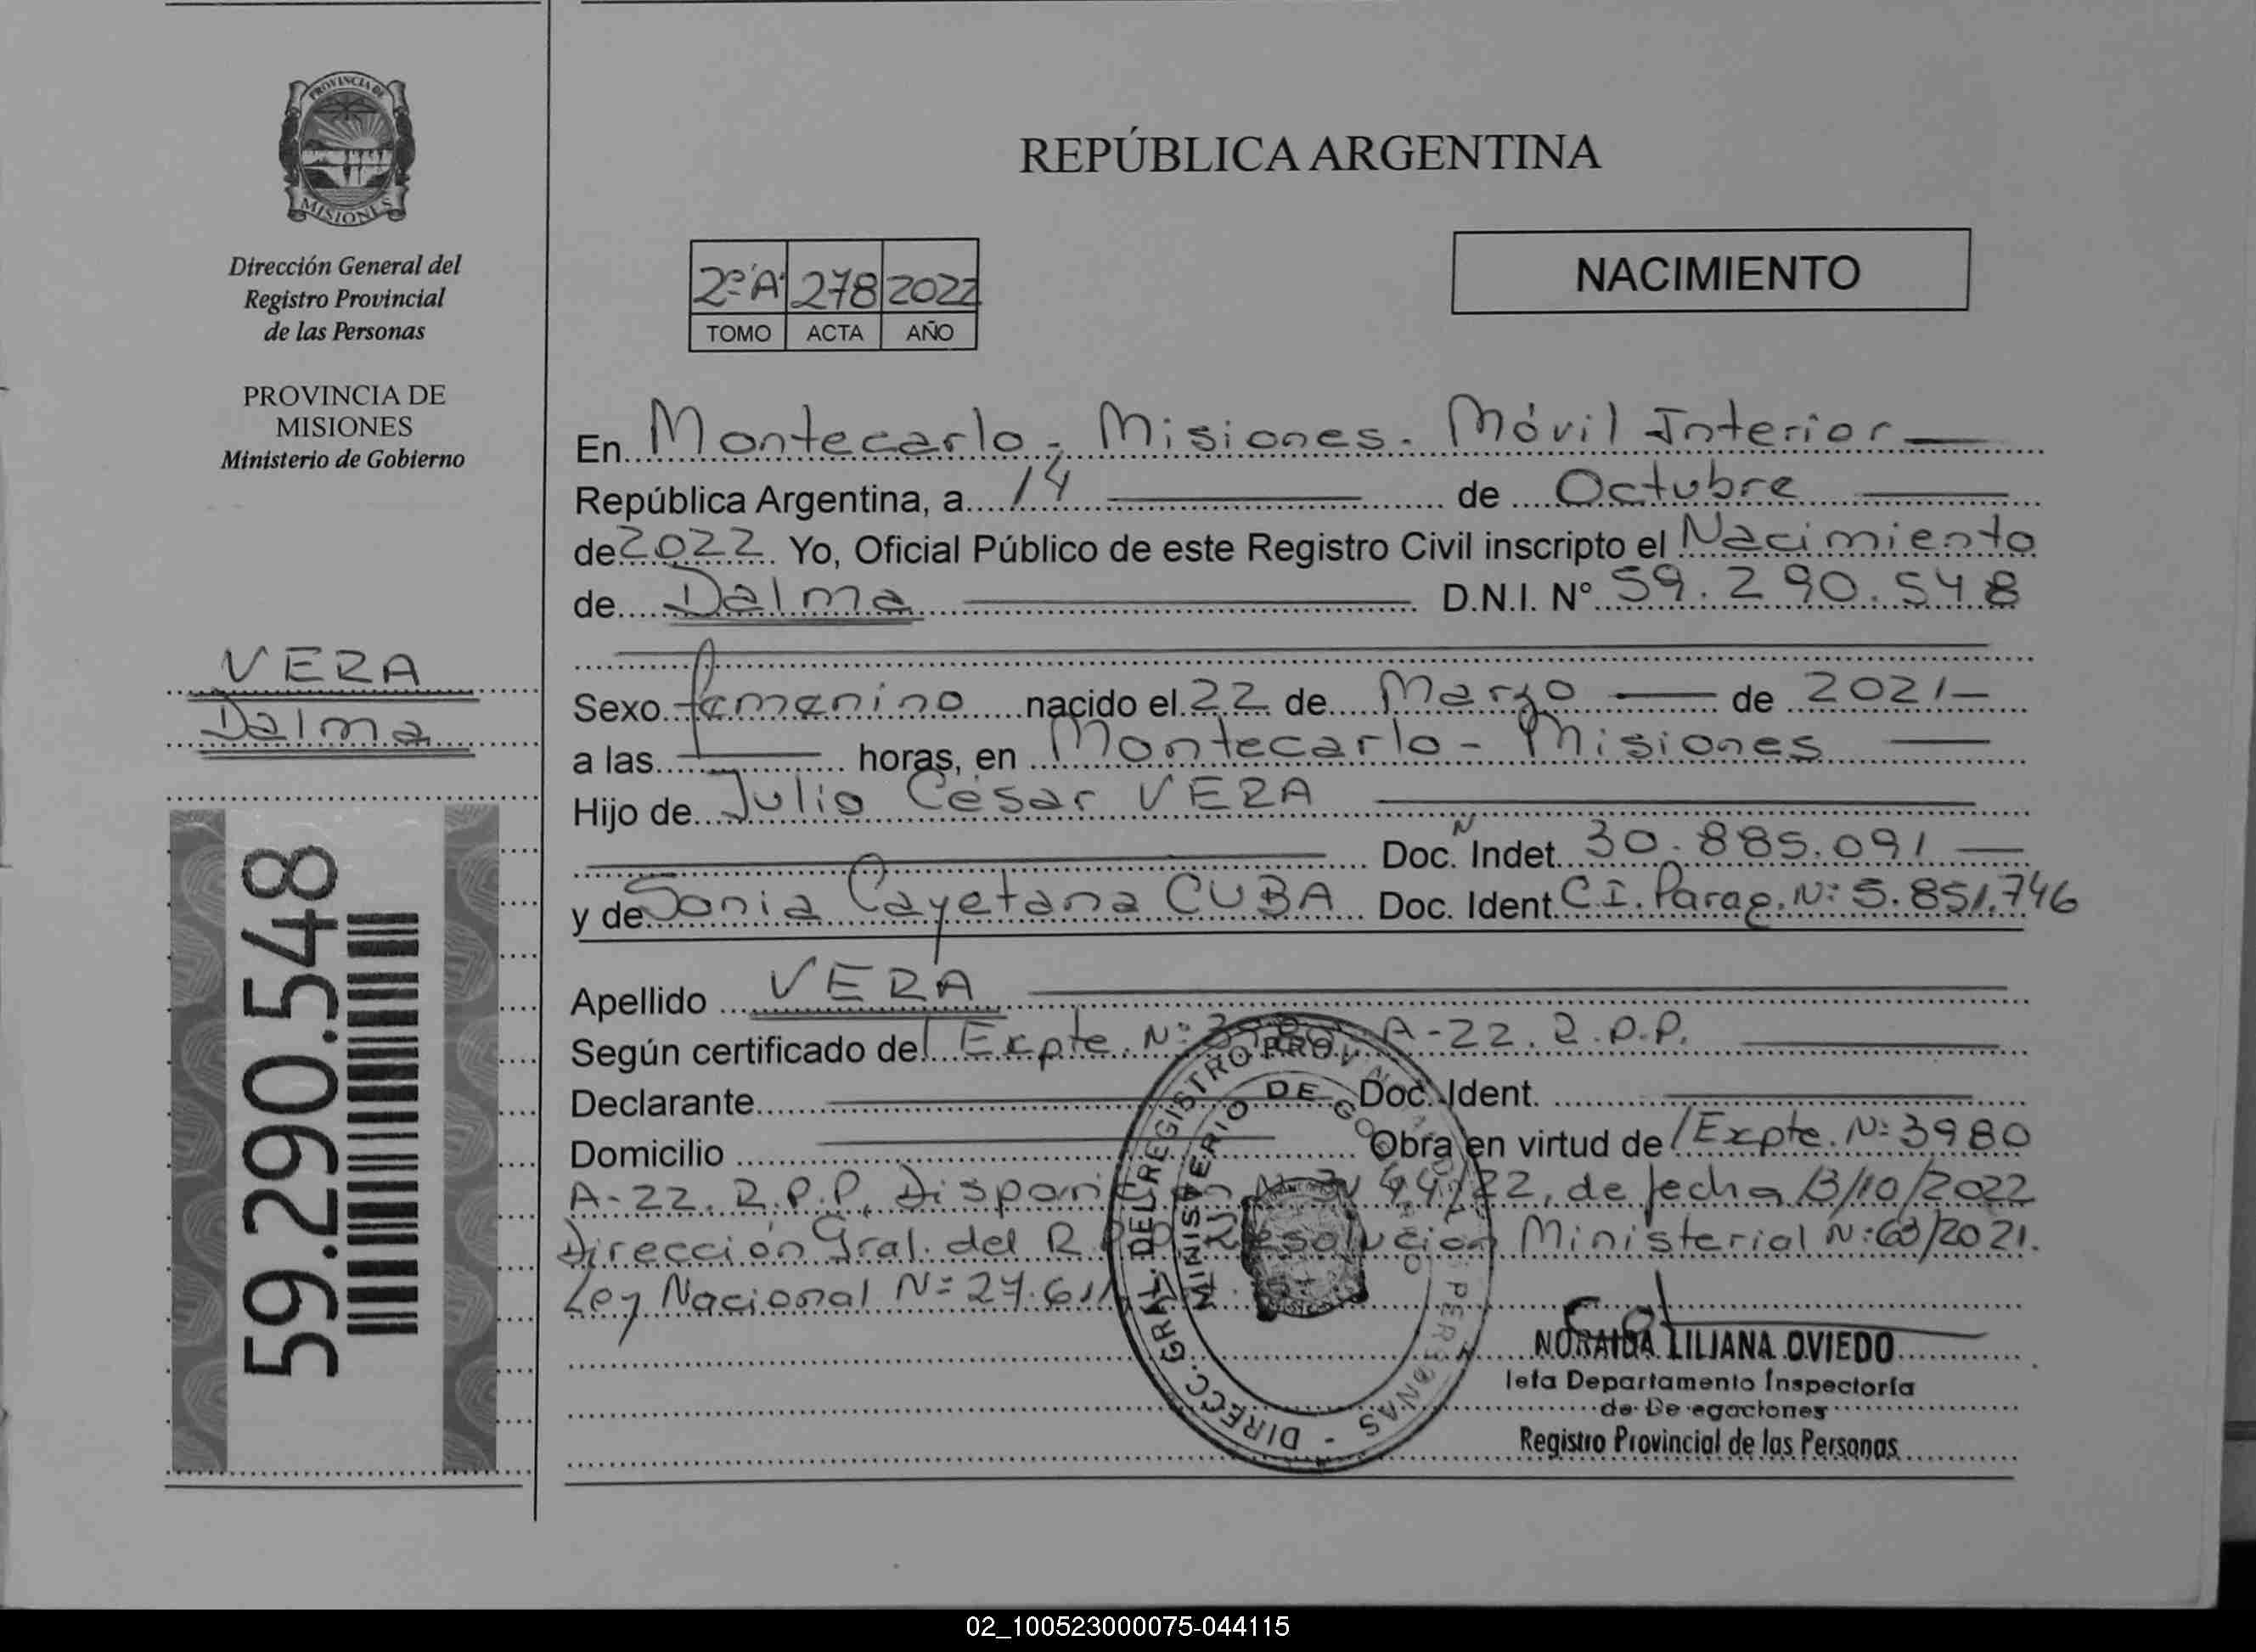 PROVINCIA DE
MISIONES
Dirección General del
Registro Provincial
de las Personas
PROVINCIA DE
MISIONES
Ministerio de Gobierno
VERA
Dalma
59.290.548
REPÚBLICA ARGENTINA
2º A 278 2022
TOMO ACTA AÑO
NACIMIENTO
En Montecarlo - Misiones - Móvil Interior
República Argentina, a 14 de Octubre
de 2022 Yo, Oficial Público de este Registro Civil inscripto el Nacimiento
de Dalma D.N.I. N° 59.290.548
Sexo femenino nacido el 22 de Marzo de 2021
a las horas, en Montecarlo - Misiones
Hijo de Julio César VERA
Doc. Indet. 30.885.091
y de Sonia Cayetana CUBA Doc. Ident. C.I. Parag. Nº 5.851.746
Apellido VERA
Según certificado de Expte. Nº A-22. R.P.P.
Declarante Doc. Ident.
Domicilio Obra en virtud de Expte. Nº 3980
A-22. R.P.P. Disposición 22, de fecha 13/10/2022
Dirección Gral. del R.P.P. Resolución Ministerial Nº 63/2021.
Ley Nacional Nº 27.611.
DIRECC. GRAL. DEL REGISTRO PROV. PERSONAS -
MINISTERIO DE GO
NORAIDA LILIANA OVIEDO
Jefa Departamento Inspectoría
de Delegaciones
Registro Provincial de las Personas
02_100523000075-044115